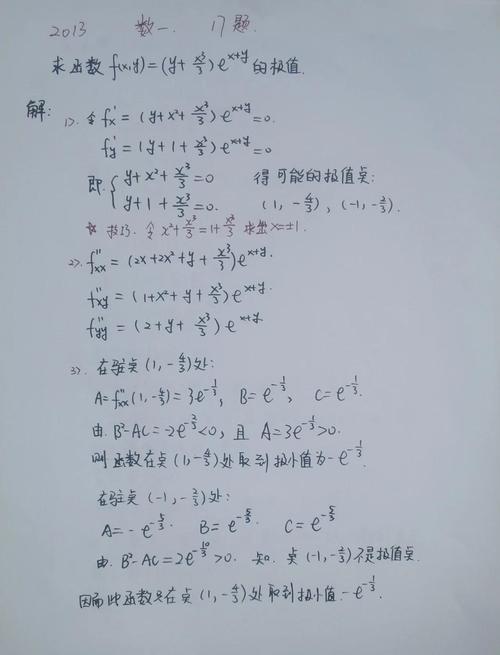 2013 数一. 17题.
求函数 f(x,y)=(y+x³/3)e^(x+y) 的极值.
解:
1). 令 f'x=(y+x²+x³/3)e^(x+y)=0.
f'y=(y+1+x³/3)e^(x+y)=0
即 { y+x²+x³/3=0 得可能的极值点:
y+1+x³/3=0. (1,-4/3), (-1,-2/3).
☆ 技巧. 令 x²+x³/3=1+x³/3 求出 x=±1.
2). f''xx=(2x+2x²+y+x³/3)e^(x+y).
f''xy=(1+x²+y+x³/3)e^(x+y).
f''yy=(2+y+x³/3)e^(x+y).
3). 在驻点(1,-4/3)处:
A=f''xx(1,-4/3)=3e^(-1/3), B=e^(-1/3), C=e^(-1/3).
由. B²-AC=-2e^(-2/3)<0, 且 A=3e^(-1/3)>0.
则函数在点(1,-4/3)处取到极小值为-e^(-1/3).
在驻点(-1,-2/3)处:
A=-e^(-5/3). B=e^(-5/3). C=e^(-5/3)
由. B²-AC=2e^(-10/3)>0. 知. 点(-1,-2/3)不是极值点.
因而此函数只在点(1,-4/3)处取到极小值-e^(-1/3).